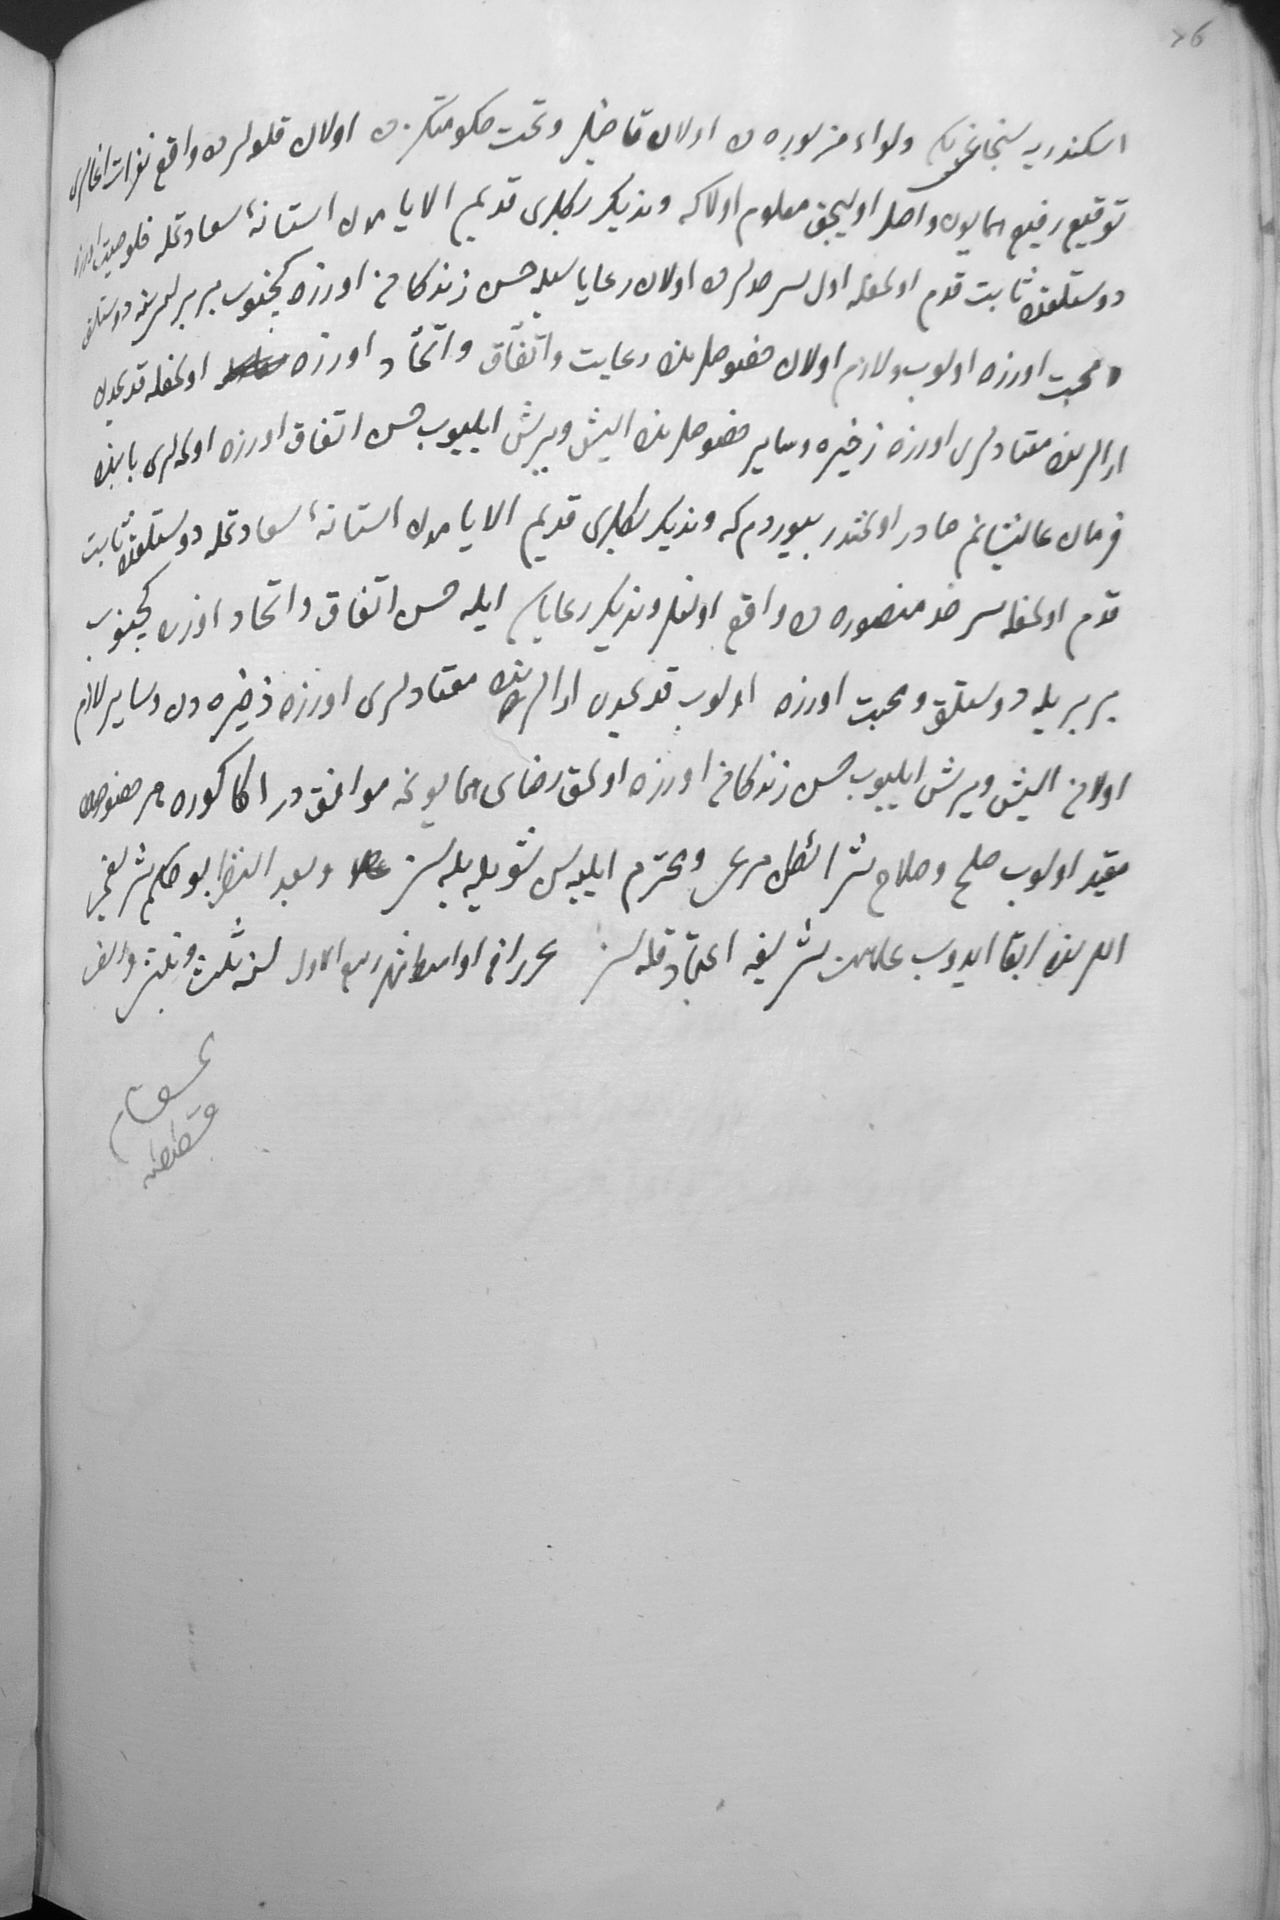 76
اسكندريه سنجاغی بكی ولواء مزبوره ده اولان قاضيلر وتحت حكومتكزده اولان قلعه لرده واقع نفرات اغالری
توقيع رفيع همايون واصل اوليجق معلوم اولا كه ونديك بكلری قديم الايامدن استانهٔ سعادتمله خلوصيت اوزره
دوستلقده ثابت قدم اولمغله اول سرحدلرده اولان رعايا سيله حسن زندكانی اوزره كچينوب بربرلرينه دوستلق
ومحبت اوزره اولوب ولازم اولان خصوصلرينده رعايت واتفاق واتحاد اوزره اولمغله قديمدن
ارالرينده معتادلری اوزره ذخيره وساير خصوصلرينده اليش ويرش ايليوب حسن اتفاق اوزره اولملری بابنده
فرمان عاليشانم صادر اولمشدر بيوردم كه ونديك بكلری قديم الايامدن استانهٔ سعادتمله دوستلقده ثابت
قدم اولمغله سرحد منصوره ده واقع اولنلر ونديك رعاياسی ايله حسن اتفاق واتحاد اوزره كچينوب
بربريله دوستلق ومحبت اوزره اولوب قديمدن ارالرينده معتادلری اوزره ذخيره دن وساير لازم
اولانی اليش ويرش ايليوب حسن زندكانی اوزره اولمق رضای همايونمه موافقدر اكا كوره هر خصوصده
مقيد اولوب صلح وصلاح شرائطن مرعی ومحترم ايليه سن شويله بله سز وبعد النظر بو حكم شريفمی
اللرينده ابقا ايدوب علامت شريفه اعتماد قله سز تحريرا فی اواسط شهر ربيع الاول لسنه ثلث وثلثين والف
بمقام
قسطنطنيه